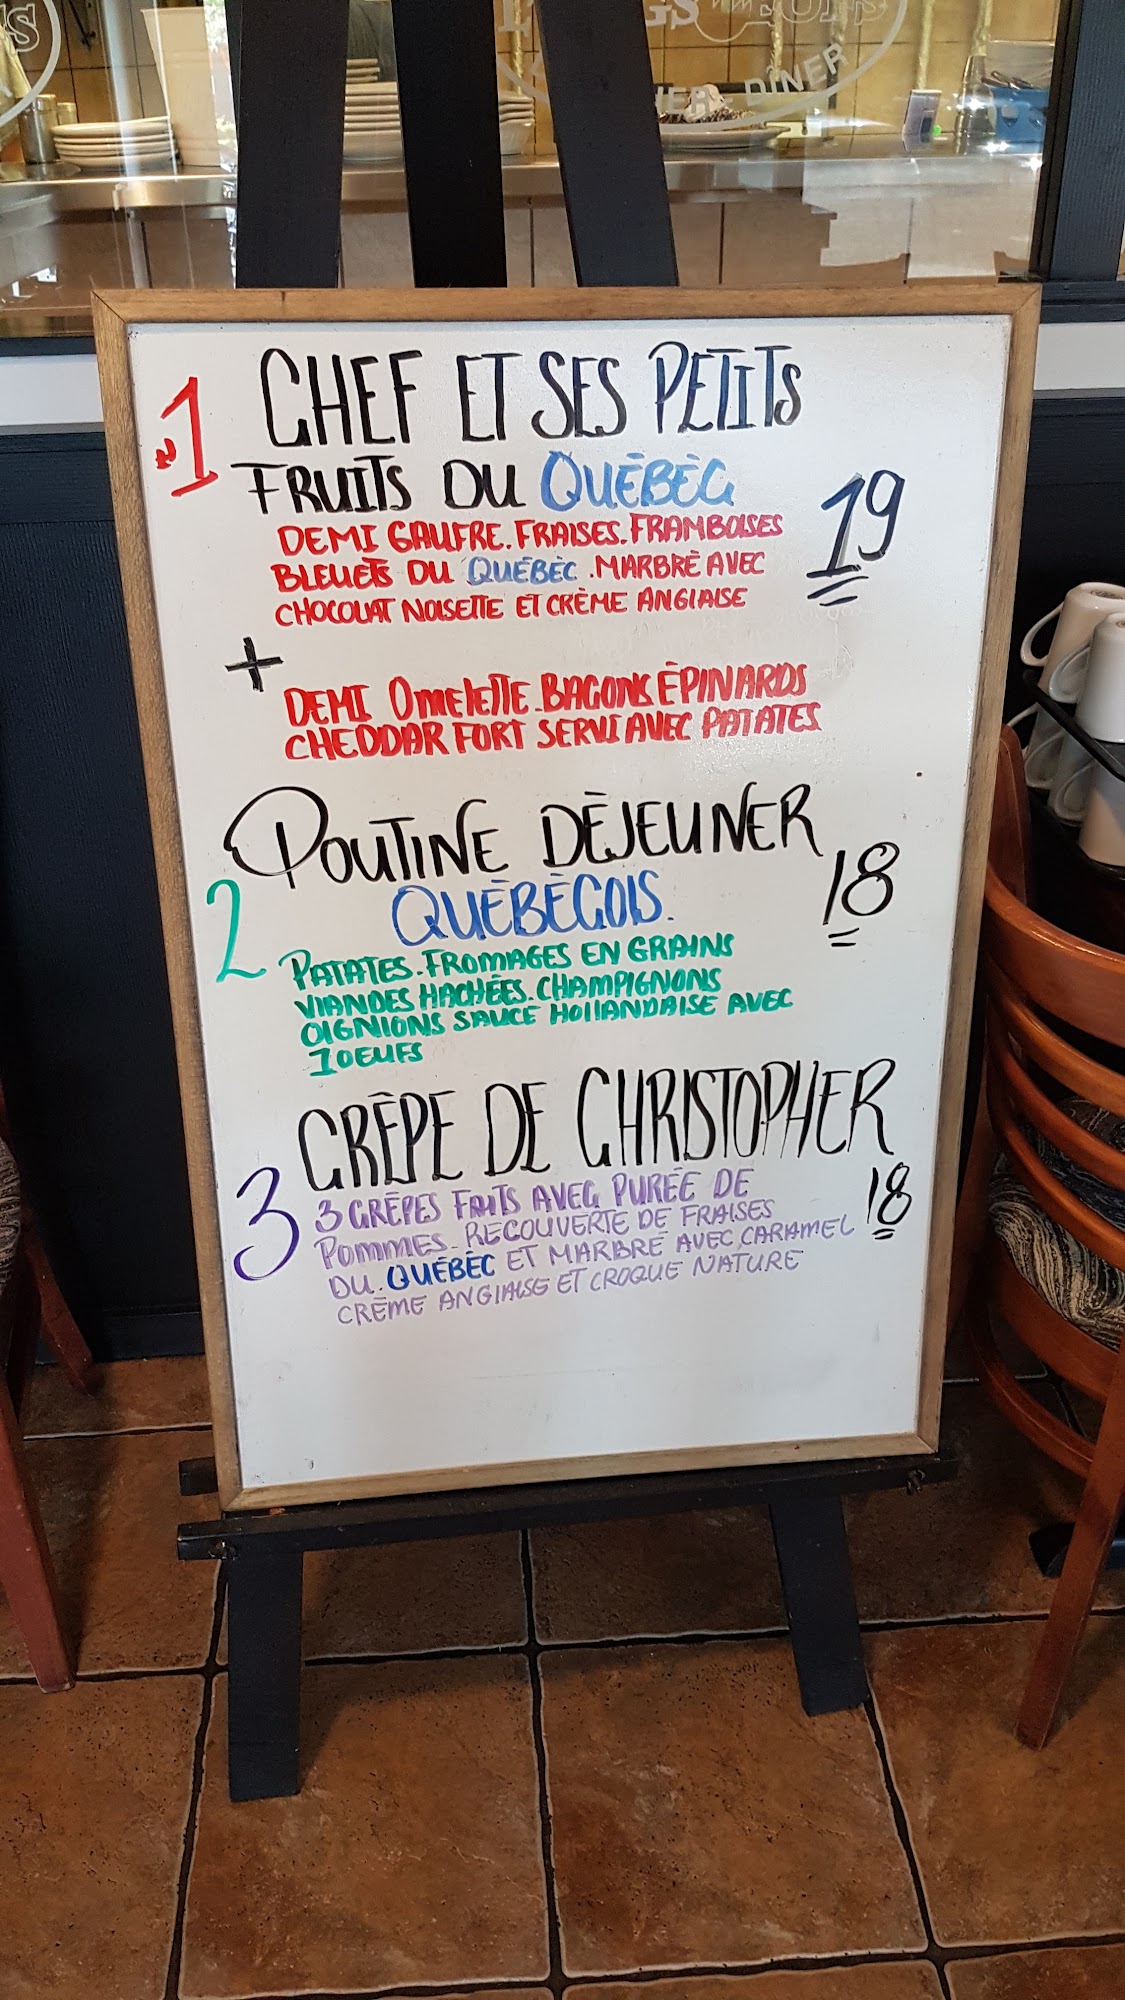 DÎNER
№1
CHEF ET SES PETITS
FRUITS DU QUÉBÉC
19
DEMI GAUFRE. FRAISES. FRAMBOISES
BLEUETS DU QUÉBÉC. MARBRÉ AVEC
CHOCOLAT NOISETTE ET CRÈME ANGLAISE
+
DEMI Omelette. BACONS ÉPINARDS
CHEDDAR FORT SERVI AVEC PATATES
POUTINE DÉJEUNER
QUÉBÉCOIS.
18
2
PATATES. FROMAGES EN GRAINS
VIANDES HACHÉES. CHAMPIGNONS
OIGNIONS SAUCE HOLLANDAISE AVEC
1 OEUFS
CRÊPE DE CHRISTOPHER
3
18
3 CRÊPES FRUITS AVEC PURÉE DE
POMMES. RECOUVERTE DE FRAISES
DU. QUÉBÉC ET MARBRÉ AVEC CARAMEL
CRÈME ANGLAISE ET CROQUE NATURE